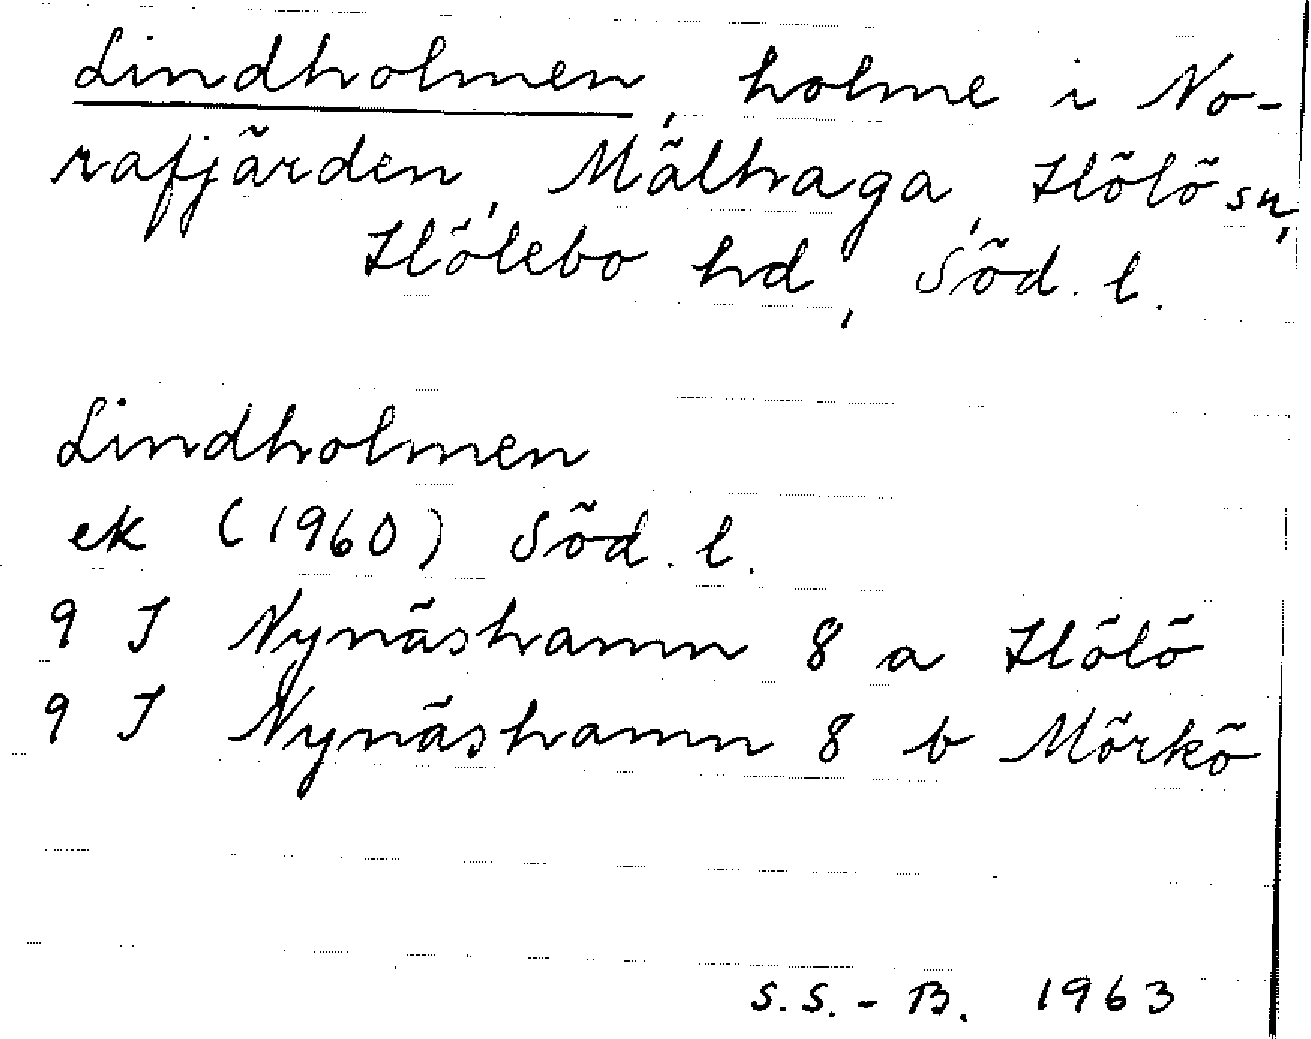 Lindholmen, holme i No-
rafjärden, Mälhaga, Hölö sn,
Hölebo hd, Söd. l.
Lindholmen
ek (1960) Söd. l.
9 I Nynäshamn 8 a Hölö
9 I Nynäshamn 8 b Mörkö
S.S.-B. 1963